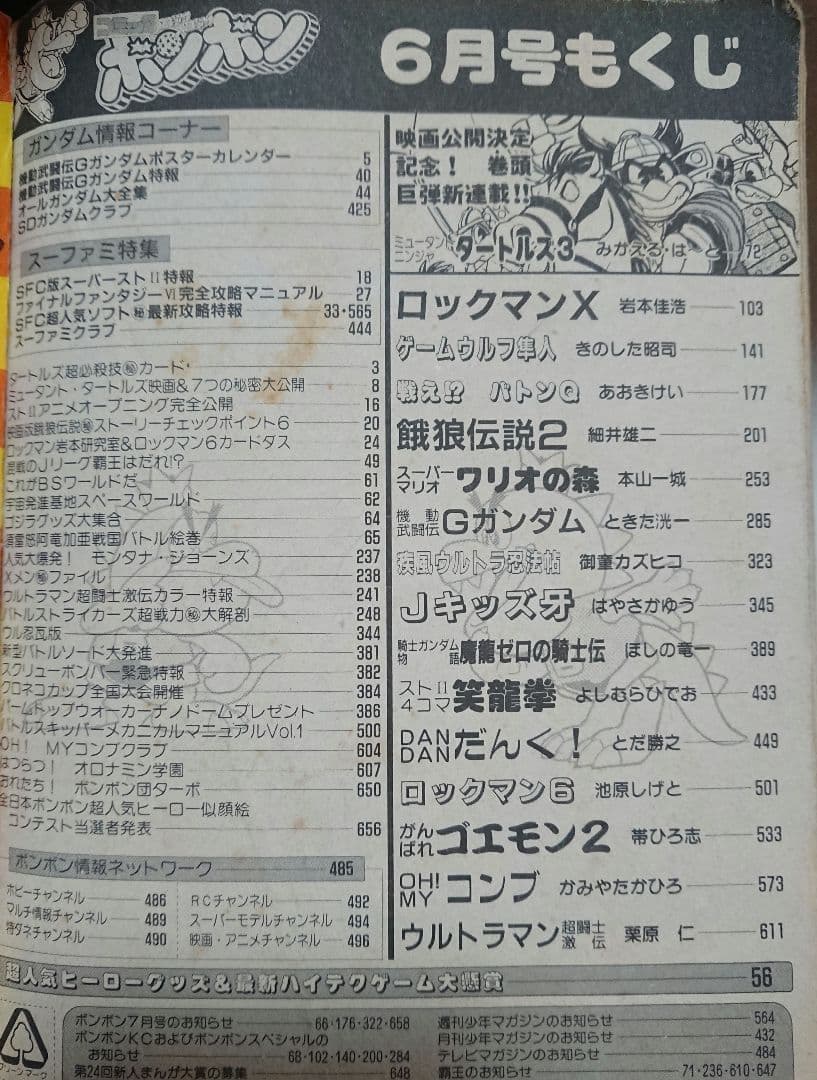 コミック
ボンボン
6月号もくじ
ガンダム情報コーナー
機動武闘伝Gガンダムポスターカレンダー 5
機動武闘伝Gガンダム特報 40
オールガンダム大全集 44
SDガンダムクラブ 425
スーファミ特集
SFC版スーパーストⅡ特報 18
ファイナルファンタジーⅥ完全攻略マニュアル 27
SFC超人気ソフト㊙最新攻略特報 33・565
スーファミクラブ 444
タートルズ超必殺技㊙カード 3
ミュータント・タートルズ映画&7つの秘密大公開 8
ストⅡアニメオープニング完全公開 16
映画版餓狼伝説㊙ストーリーチェックポイント6 20
ロックマン岩本研究室&ロックマン6カードダス 24
混戦のJリーグ覇王はだれ!? 49
これがBSワールドだ 61
宇宙発進基地スペースワールド 62
ゴジラグッズ大集合 64
須童怒阿竜加亜戦国バトル絵巻 65
人気大爆発! モンタナ・ジョーンズ 237
Xメン㊙ファイル 238
ウルトラマン超闘士激伝カラー特報 241
バトルストライカーズ超戦力㊙大解剖 248
ウル忍瓦版 344
新型バトルソード大発進 381
スクリューボンバー緊急特報 382
クロネコカップ全国大会開催 384
パームトップウォーカーチノドームプレゼント 386
バトルスキッパーメカニカルマニュアルVol.1 500
OH! MYコンブクラブ 604
はつらつ! オロナミン学園 607
おれたち! ボンボン団ターボ 650
全日本ボンボン超人気ヒーロー似顔絵
コンテスト当選者発表 656
ボンボン情報ネットワーク 485
ホビーチャンネル 486
マルチ情報チャンネル 489
特ダネチャンネル 490
RCチャンネル 492
スーパーモデルチャンネル 494
映画・アニメチャンネル 496
映画公開決定
記念! 巻頭
巨弾新連載!!
ミュータント ニンジャ タートルズ3 みかえる・は〜と 72
ロックマンX 岩本佳浩 103
ゲームウルフ隼人 きのした昭司 141
戦え!? パトンQ あおきけい 177
餓狼伝説2 細井雄二 201
スーパーマリオ ワリオの森 本山一城 253
機動武闘伝 Gガンダム ときた洸一 285
疾風ウルトラ忍法帖 御童カズヒコ 323
Jキッズ牙 はやさかゆう 345
騎士ガンダム物語 魔龍ゼロの騎士伝 ほしの竜一 389
ストⅡ4コマ 笑龍拳 よしむらひでお 433
DANDANだんく! とだ勝之 449
ロックマン6 池原しげと 501
がんばれゴエモン2 帯ひろ志 533
OH!MYコンブ かみやたかひろ 573
ウルトラマン超闘士激伝 栗原 仁 611
超人気ヒーローグッズ&最新ハイテクゲーム大懸賞 56
グリーンマーク
ボンボン7月号のお知らせ 66・176・322・658
ボンボンKCおよびボンボンスペシャルの
お知らせ 68・102・140・200・284
第24回新人まんが大賞の募集 648
週刊少年マガジンのお知らせ 564
月刊少年マガジンのお知らせ 432
テレビマガジンのお知らせ 484
覇王のお知らせ 71・236・610・647